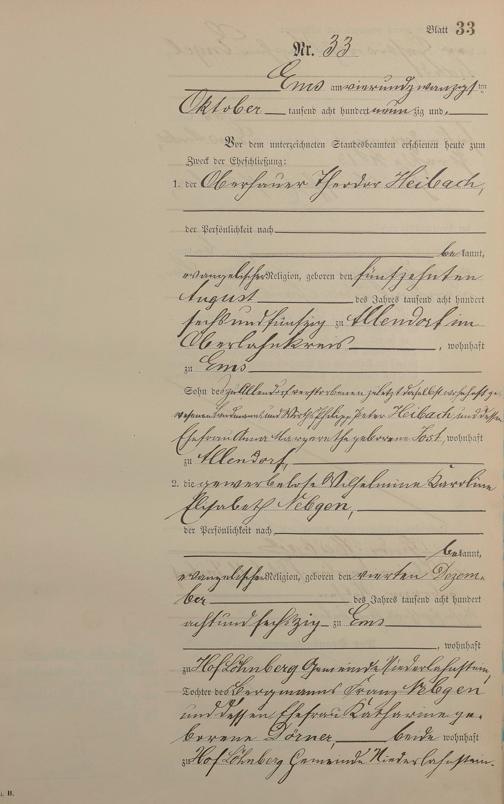 Blatt 33
Nr. 33
Ems am vierundzwanzigsten
Oktober tausend acht hundert neunzig und
Vor dem unterzeichneten Standesbeamten erschienen heute zum
Zweck der Eheschließung:
1. der Oberhauer Theodor Heibach,
der Persönlichkeit nach
bekannt,
evangelischer Religion, geboren den fünfzehnten
August des Jahres tausend acht hundert
sechs und fünfzig zu Allendorf im
Oberlahnkreis, wohnhaft
zu Ems
Sohn des zu Allendorf verstorbenen zuletzt daselbst wohnhaft ge-
wesenen Bergmanns und Philipp Peter Heibach, und dessen
Ehefrau Anna Margarethe geborene Jost, wohnhaft
zu Allendorf,
2. die gewerbelose Wilhelmine Karoline
Elisabeth Nebgen,
der Persönlichkeit nach
bekannt,
evangelischer Religion, geboren den vierten Dezem-
ber des Jahres tausend acht hundert
acht und sechszig zu Ems
, wohnhaft
zu Hof Löhnberg Gemeinde Niederlahnstein,
Tochter des Bergmanns Franz Nebgen
und dessen Ehefrau Katharine ge-
borene Dörner, beide wohnhaft
zu Hof Löhnberg Gemeinde Niederlahnstein.